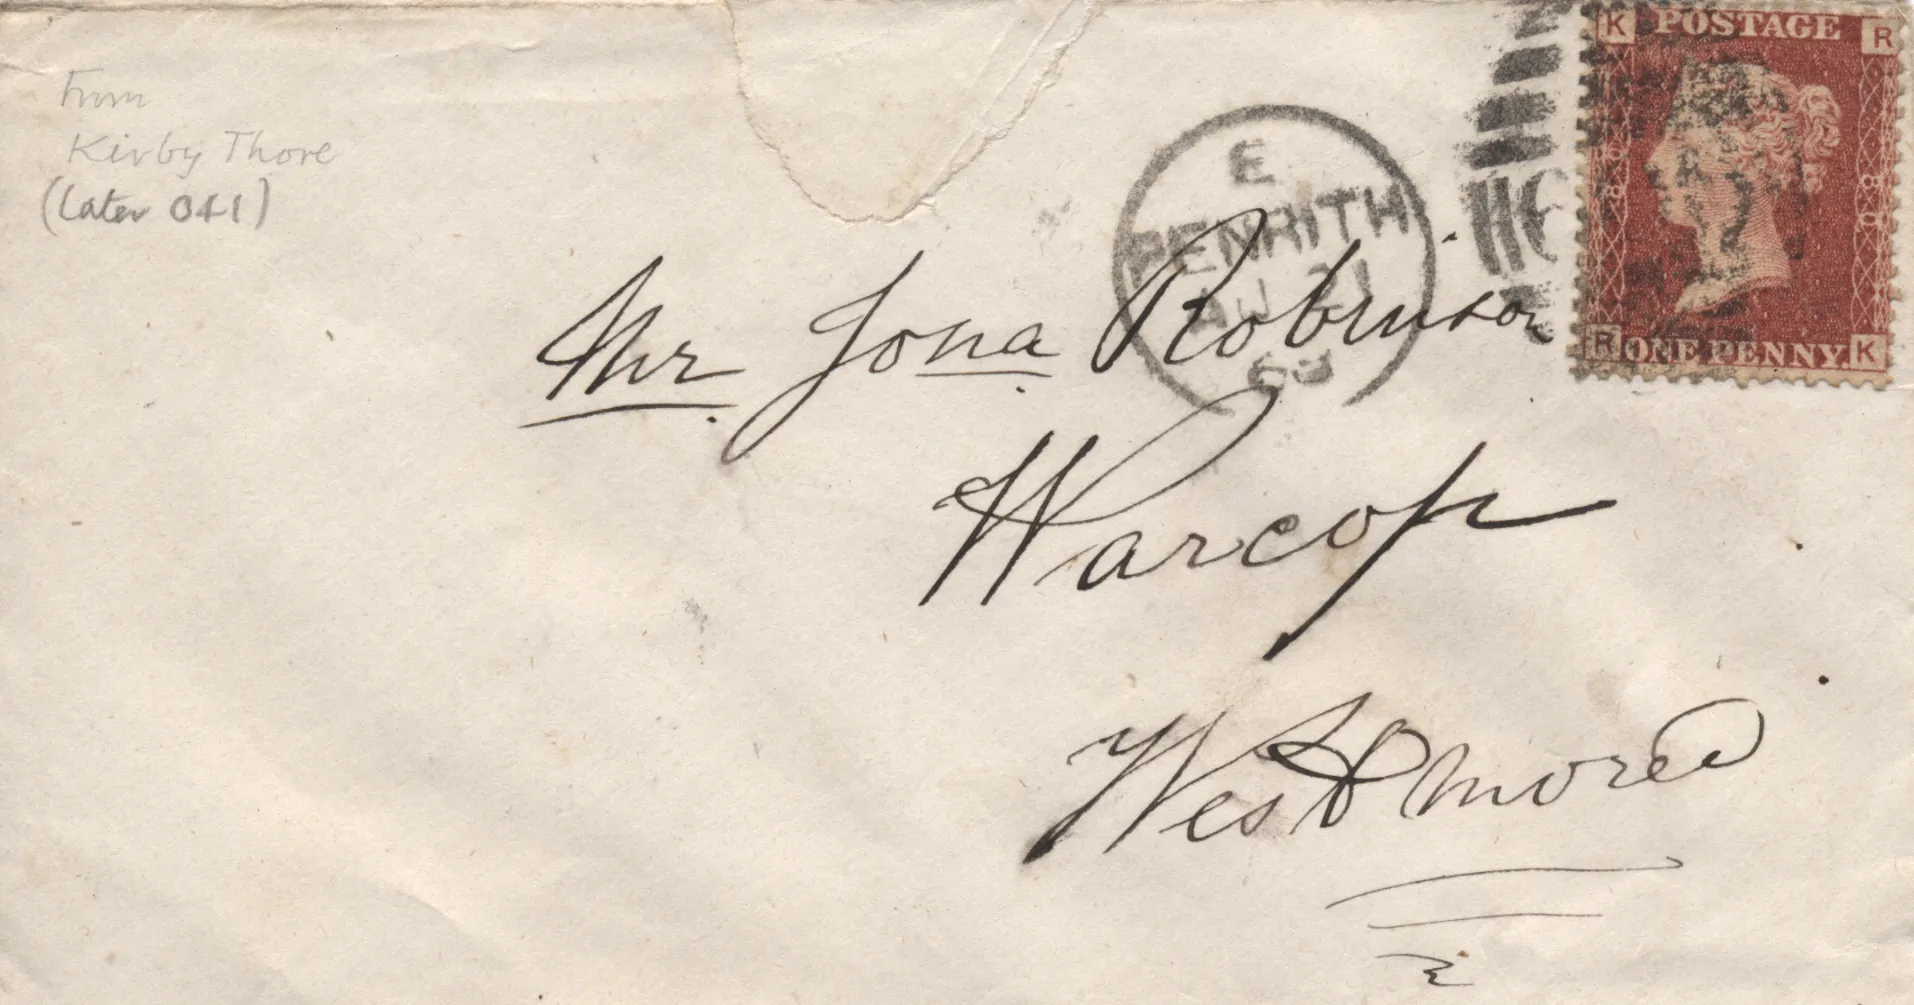 From
Kirby Thore
(Later O41)
E
PENRITH
AU 21
69
K POSTAGE R
R ONE PENNY. K
Mr. Jona. Robinson
Warcop
Westmored